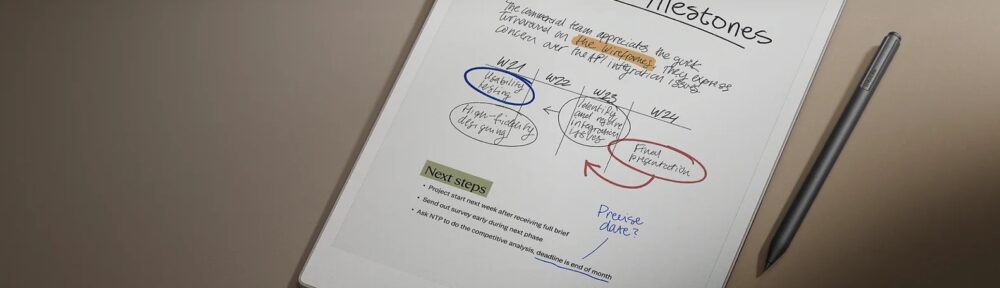 milestones
The commercial team appreciates the quick
turnaround on the wireframes. They express
concern over the API integration issues.
W21 W22 W23 W24
Usability
testing
High-fidelity
designing
Identify
and resolve
integration
issues
Final
presentation
Next steps
• Project start next week after receiving full brief
• Send out survey early during next phase
• Ask NTP to do the competitive analysis, deadline is end of month
Precise
date?